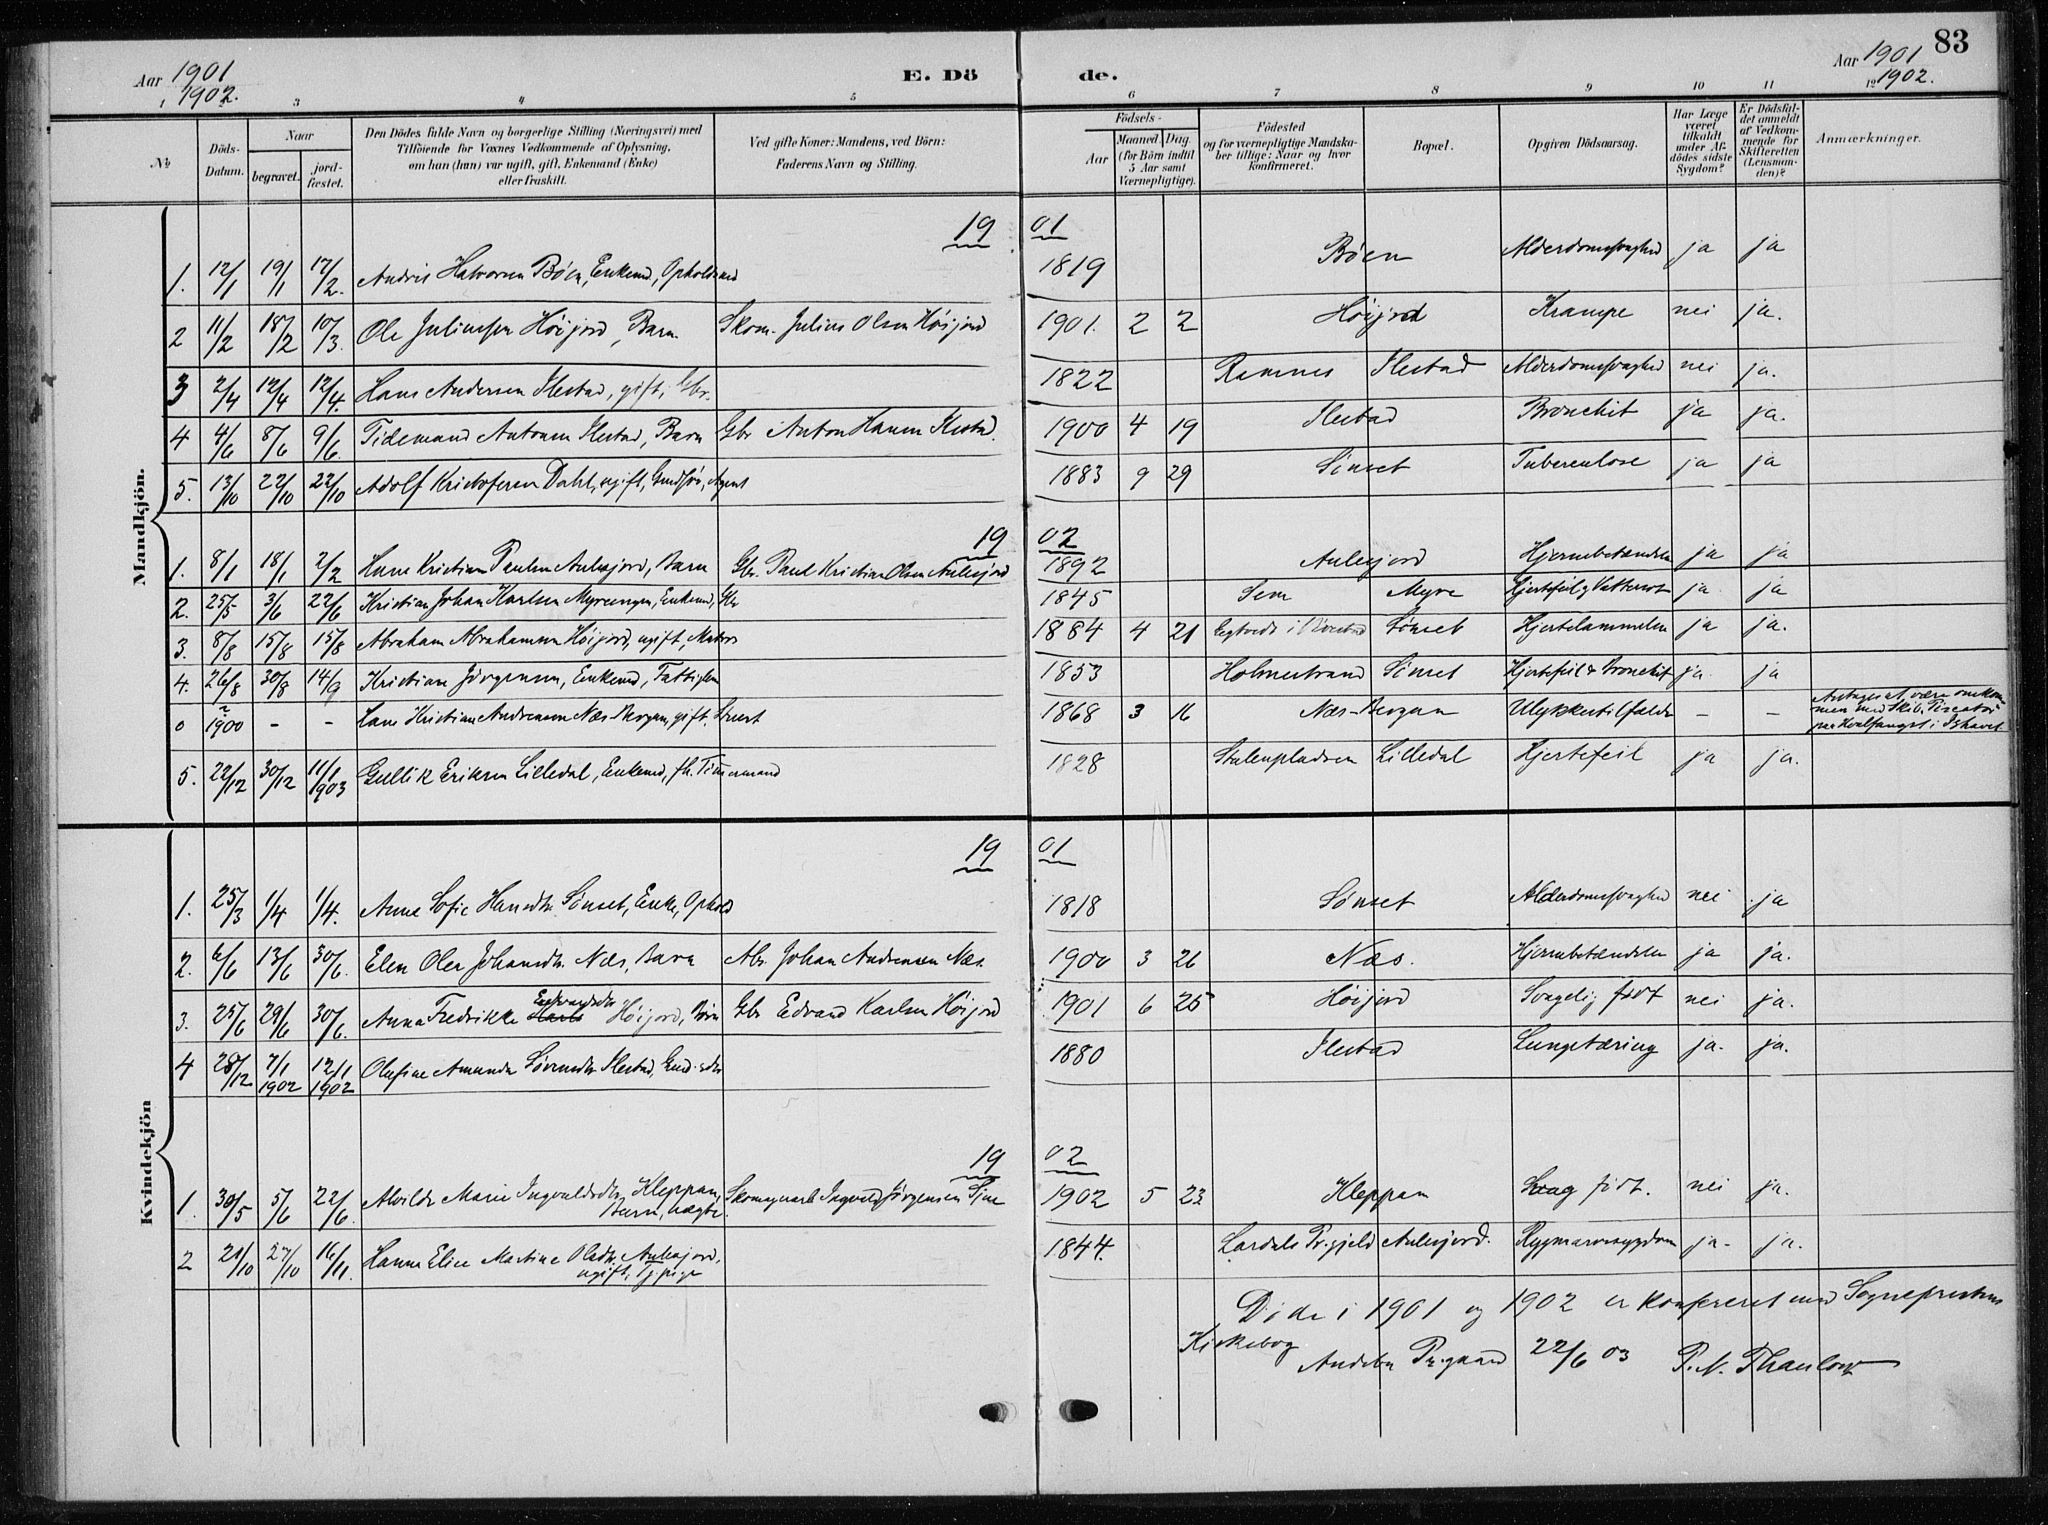 83
Aar 1901 1902.
E. Döde.
Aar 1901 1902.
1 3 4 5 6 7 8 9 10 11 12
№
Döds-Datum.
Naar
begravet.
jordfæstet.
Den Dödes fulde Navn og borgerlige Stilling (Næringsvei) med
Tilföiende for Voxnes Vedkommende af Oplysning,
om han (hun) var ugift, gift, Enkemand (Enke)
eller fraskilt.
Ved gifte Koner: Mandens, ved Börn:
Faderens Navn og Stilling.
Födsels-
Aar
Maaned Dag
(for Börn indtil
5 Aar samt
Værnepligtige).
Födested
og for værnepligtige Mandska-
ber tillige: Naar og hvor
konfirmeret.
Bopæl.
Opgiven Dödsaarsag.
Har Læge
været
tilkaldt
under Af-
dödes sidste
Sygdom?
Er Dödsfal-
det anmeldt
af Vedkom-
mende for
Skifteretten
(Lensman-
den)?
Anmærkninger.
Mandkjön.
19 01
1. 12/1 19/1 17/2. Andris Halvorsen Böen, Enkemd, Opholdsmd 1819 Böen Alderdomssvaghed ja ja
2 11/2 18/2 10/3. Ole Juliussen Höijord, Barn. Skom. Julius Olsen Höijord 1901. 2 2 Höijord Krampe nei ja.
3 2/4 12/4 12/4. Hans Andersen Ilestad, gift, Gbr. 1822 Ramnes Ilestad Alderdomssvaghed nei ja.
4 4/6 8/6 9/6. Tidemand Antonsen Ilestad, Barn Gbr Anton Hansen Ilestad. 1900 4 19 Ilestad Bronchit ja ja.
5. 13/10 22/10 22/10 Adolf Kristofersen Dahl, ugift, Agent 1883 9 29 Sönset Tuberculose ja ja
19 02
1. 8/1 18/1 2/2 Hans Kristian Paulsen Aulesjord, Barn Gbr. Paul Kristian Olsen Aulesjord 1892 Aulesjord Hjernebetændelse ja ja
2. 25/5 3/6 22/6 Kristian Johan Karlsen Myreengen, Enkemd, Gbr 1845 Sem Myre Hjertefeil & Vattersot ja ja
3. 8/8 15/8 15/8 Abraham Abrahamsen Höijord, ugift, Matros 1884 4 21 Sönset Hjertelammelse ja ja.
4. 26/8 30/8 14/9 Kristian Jörgensen, Enkemd, Fattiglem 1853 Holmestrand Sönset Hjertefeil & Bronchit ja. ja
0 ? 1900 - - Hans Kristian Andreassen Næs-Bergan, gift, 1868 3 16 Næs-Bergan Ulykkestilfælde - - Antages at være omkom-
men med Skib. "Piscator"
paa Hvalfangst i Ishavet
5. 22/12 30/12 11/1 1903 Gullik Eriksen Lilledal, Enkemd, fh. Tömmermand 1828 Stulenpladsen Lilledal Hjertefeil ja ja.
Kvindekjön
19 01
1. 25/3 1/4 1/4. Anne Sofie Hansdtr. Sönset, Enke, Ophold 1818 Sönset Alderdomssvaghed nei ja
2. 6/6 13/6 30/6. Elen Olea Johansdtr. Næs, Barn Abr. Johan Andreassen Næs. 1900 3 26 Næs. Hjernebetændelse ja ja.
3. 25/6 29/6 30/6. Anna Fredrikke Edvardsdtr Karls Höijord, Barn Gbr Edvard Karlsen Höijord 1901 6 25 Höijord Svagelig född nei ja.
4 28/12 7/1 1902 12/1 1902 Olufine Amunda Sörensdtr Ilestad, 1880 Ilestad Lungetæring ja. ja.
19 02
1. 30/5 5/6 22/6. Alvilde Marie Ingvaldsdtr. Kleppan,
Barn, uægte. Skomagersv. Ingvald Jörgensen 1902 5 23 Kleppan Svag födt. nei ja.
2 21/10 27/10 16/11. Hanna Elise Martine Olsdtr. Aulesjord,
ugift, Tj.pige 1844. Lardals Pr.gjeld Aulesjord. Rygmarvssygdom ja- ja.
Döde i 1901 og 1902 er konfereret med Sogneprestens
Kirkebog
Andebu Pr.gaard 22/6 03 P. N. Thaulow